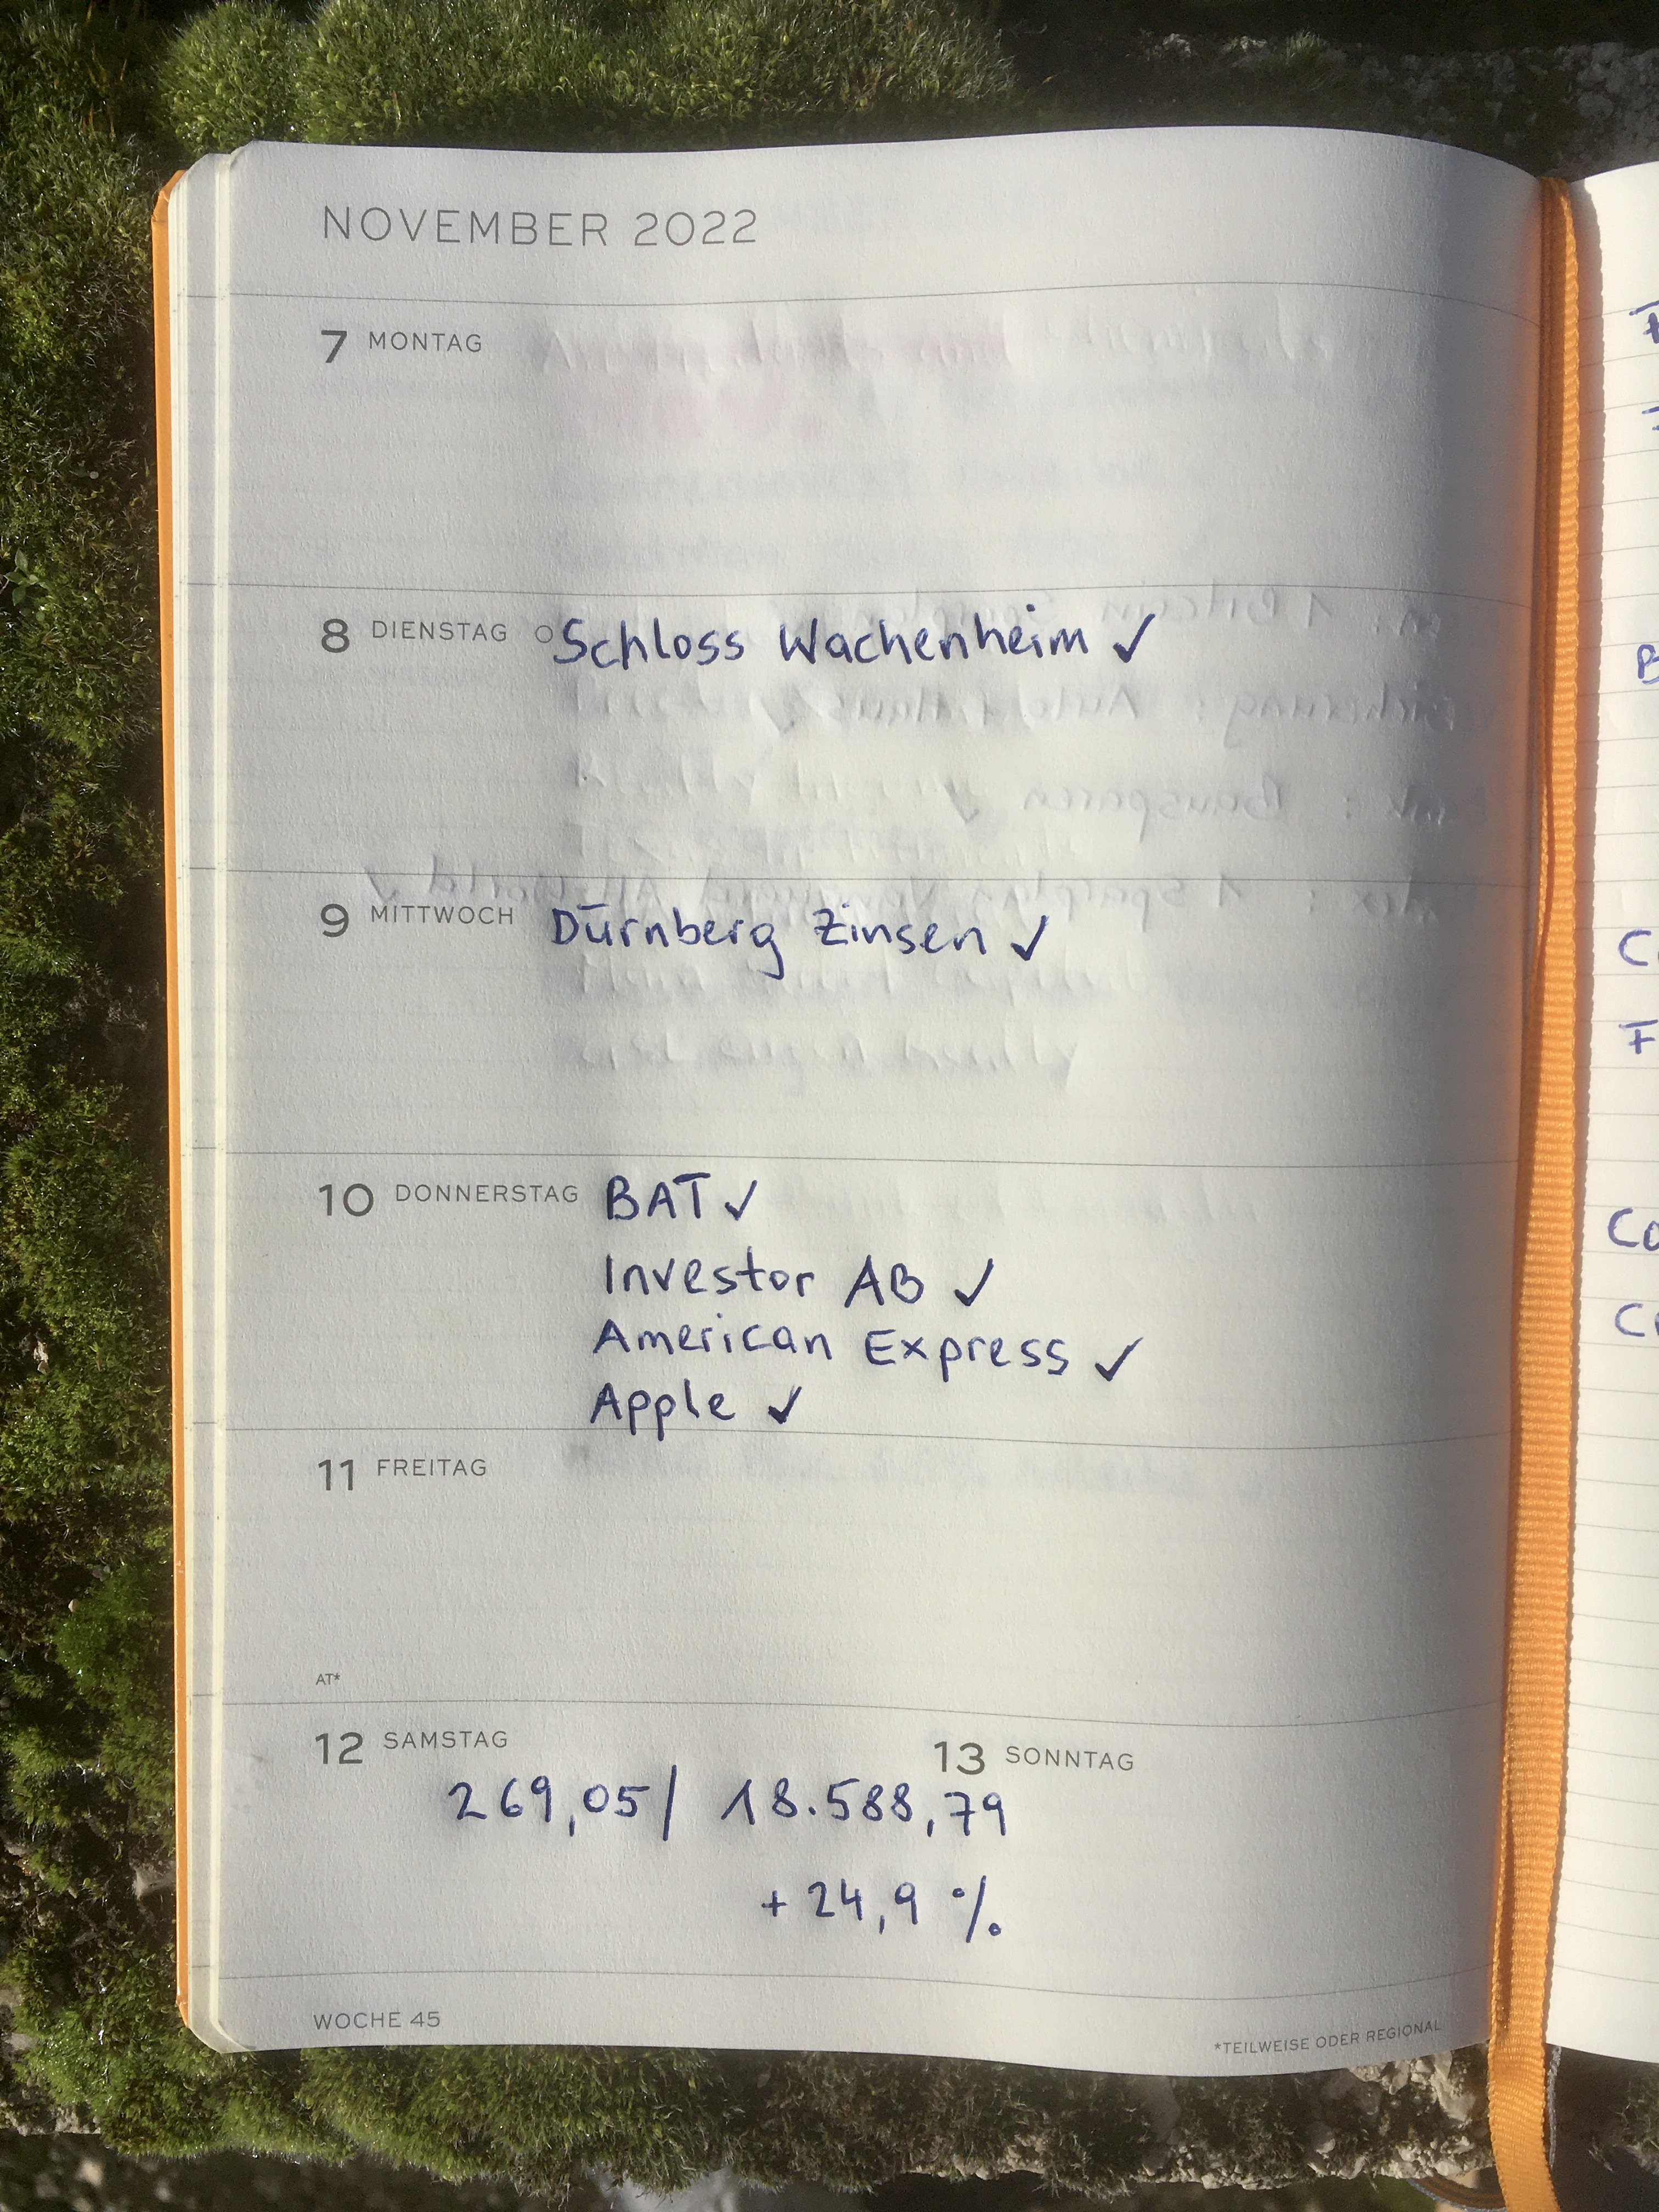 NOVEMBER 2022
7 MONTAG
8 DIENSTAG Schloss Wachenheim ✓
9 MITTWOCH Dürnberg Zinsen ✓
10 DONNERSTAG BAT ✓
Investor AB ✓
American Express ✓
Apple ✓
11 FREITAG
AT*
12 SAMSTAG
13 SONNTAG
269,05/ 18.588,79
+24,9 %
WOCHE 45
*TEILWEISE ODER REGIONAL